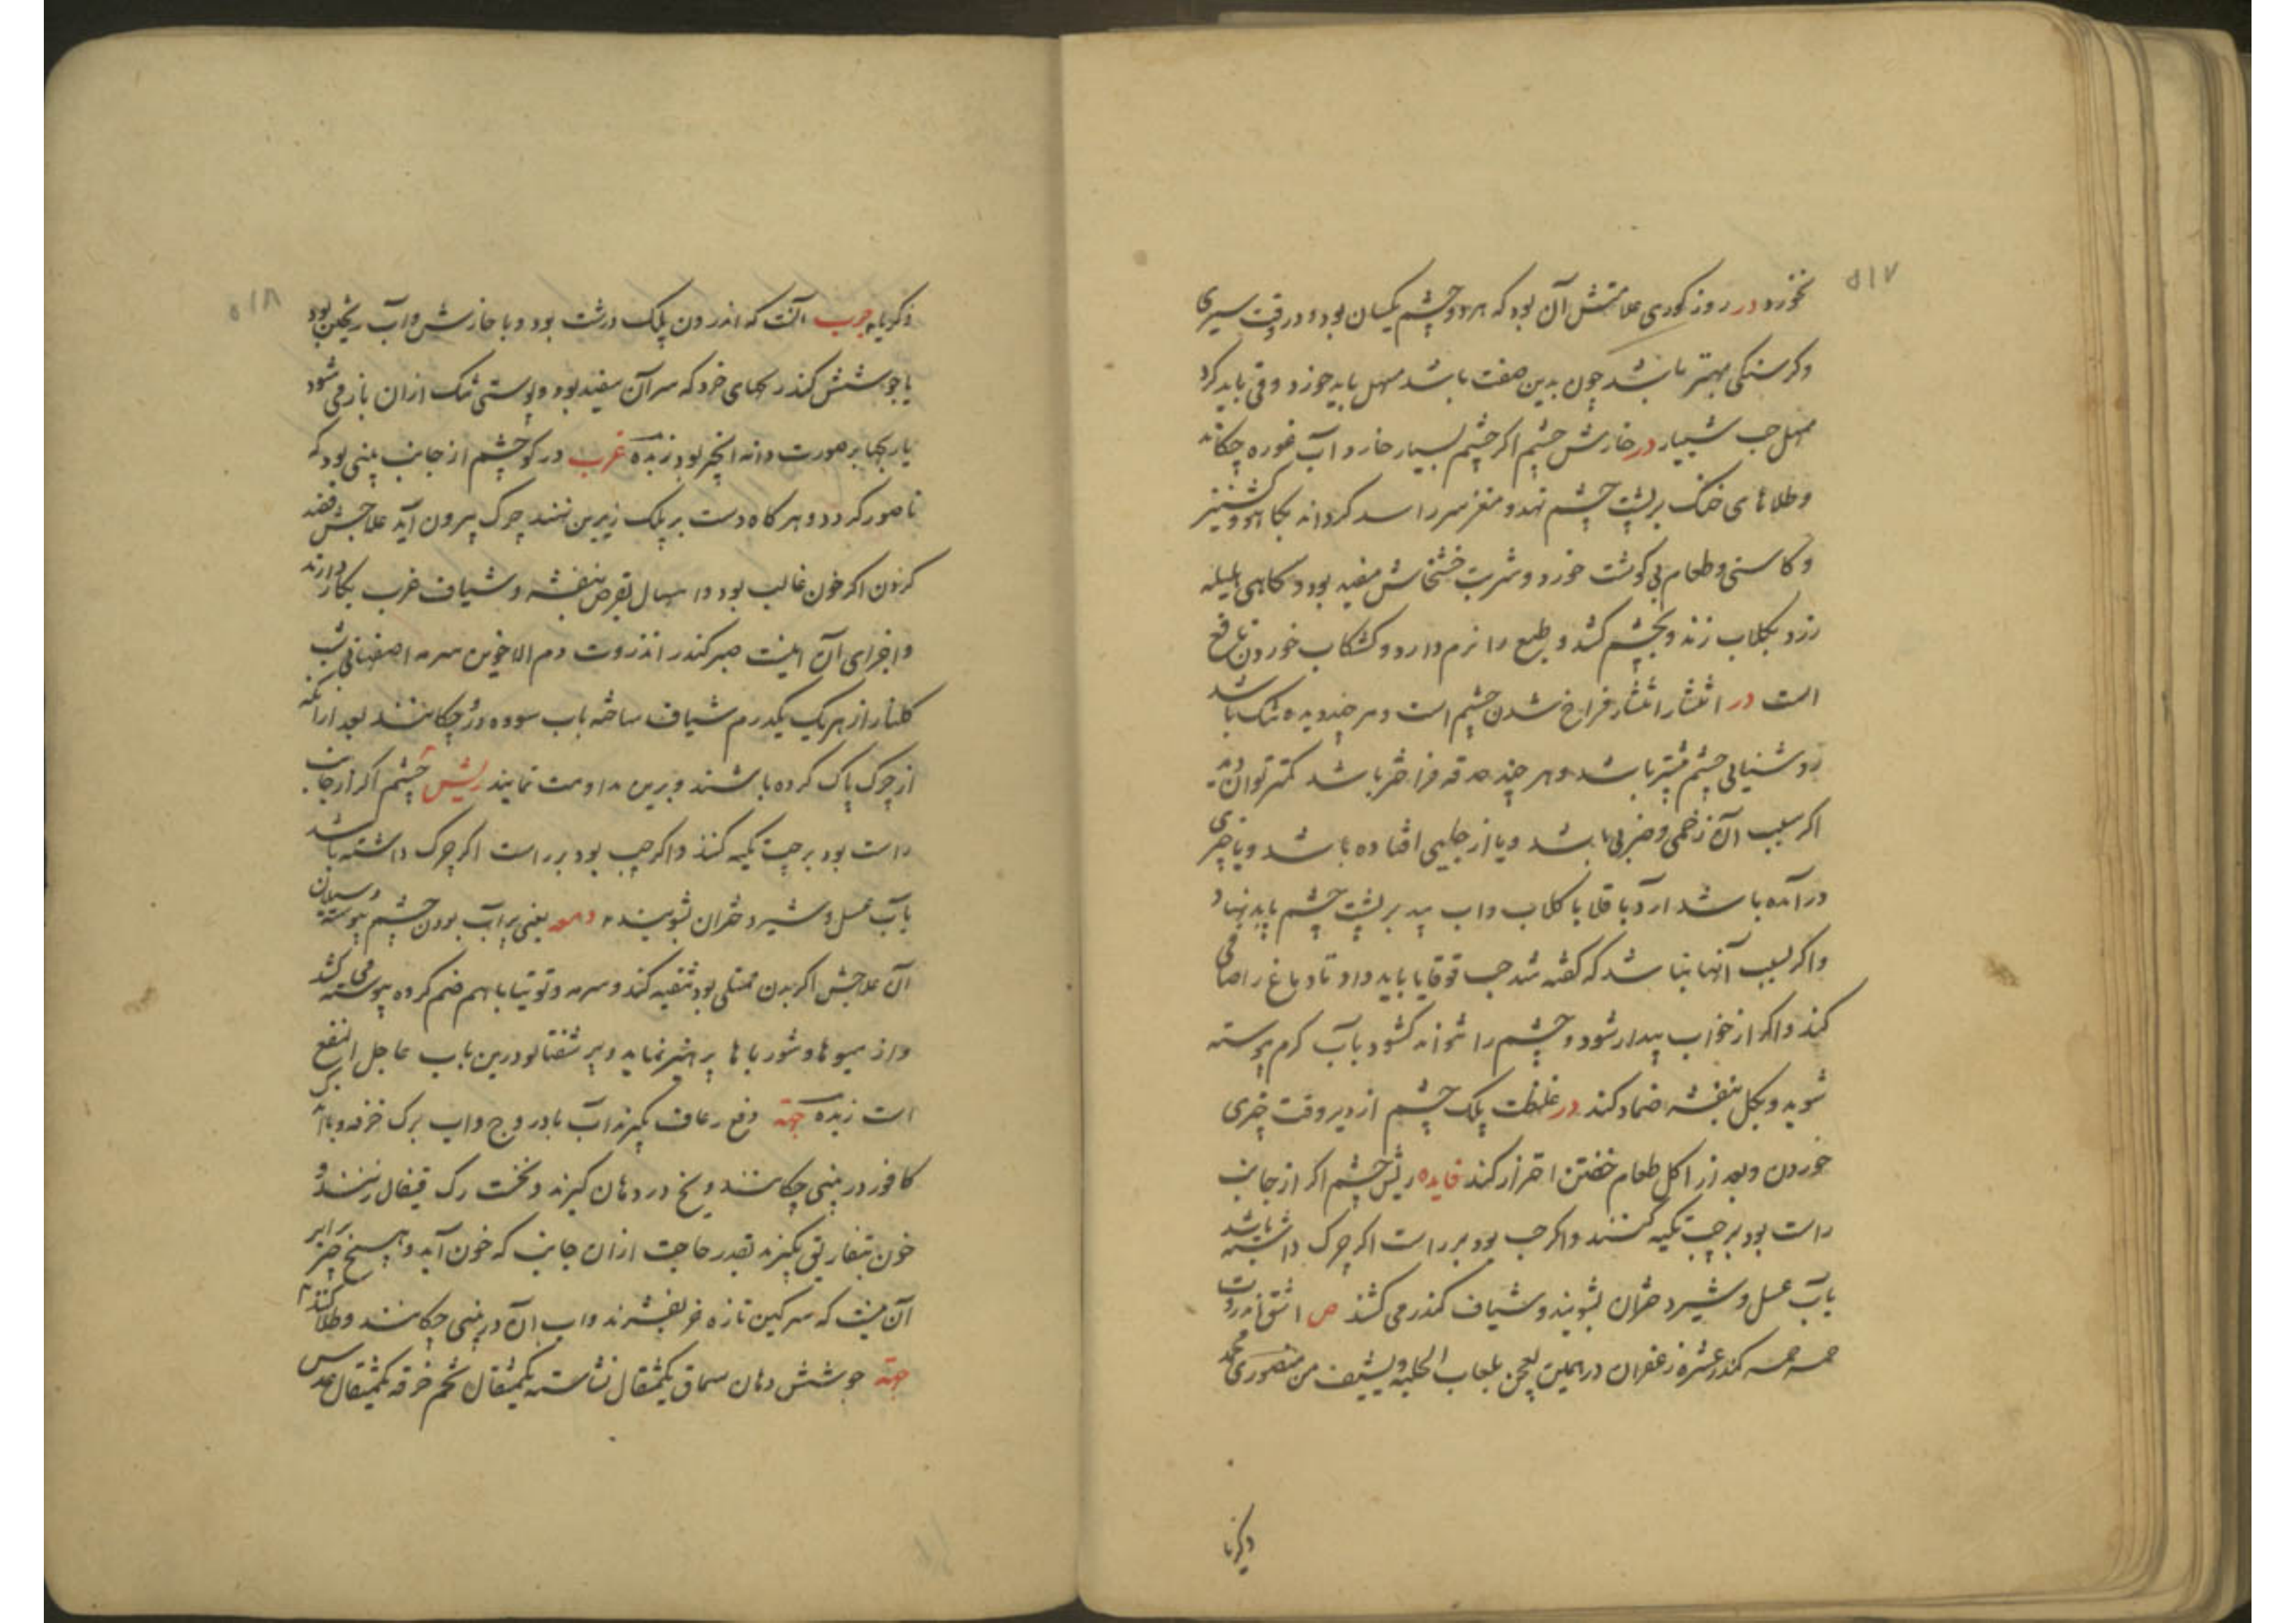 ۵۱۷
نخورد در روز کوری علامتش آن بود که هر دو چشم یکسان بود و در وقت سیری
وکرسنکی بهتر باشد چون بدین صفت باشد مسهل باید خورد و قی باید کرد
مسهل حب شبیار در خارش چشم اکر چشم بسیار خارد آب غوره چکاند
وطلاهای خنک بر پشت چشم نهد و مغز سر را سرد کرداند بکاهو و کشنیز
و کاسنی و طعام بی کوشت خورد و شربت خشخاش مفید بود و کاهی هلیله
زرد بکلاب زند و بچشم کشد و طبع را نرم دارد و کشکاب خوردن نافع
است در انتشار انتشار فراخ شدن چشم است و هر چند دیده تنک باشد
روشنیایی چشم بیشتر باشد و هر چند حدقه فراختر باشد کمتر توان دید
اکر سبب آن زخمی و ضربی باشد و یا از جایی افتاده باشد و یا چیزی
درآمده باشد آرد باقلا با کلاب و آب بید بر پشت چشم باید نهاد
واکر بسبب آنها نباشد که کفته شد حب قوقایا باید داد تا دماغ را صافی
کند و اکر از خواب بیدار شود و چشم را نتواند کشود بآب کرم پیوسته
شوید و بکل بنفشه ضماد کند در غلظت پلک چشم از دیر وقت چیزی
خوردن و بعد از اکل طعام خفتن احتراز کند فایده ریش چشم اکر از جانب
راست بود بر چپ تکیه کنند و اکر چپ بود بر راست اکر چرک داشته باشد
بآب عسل و شیر دختران بشویند و شیاف کندر می کشند ص اشق انزروت
خمسه خمسه کندر عشره زعفران درهمین یعجن بلعاب الحلبه و یشیف من منصوری محمد
ذکریا
۵۱۸
ذکریا جرب آنست که اندرون پلک درشت بود و با خارش و آب ریختن بود
یا جوشش کند ریکهای خرد که سر آن سفید بود و پوستی تنک ازان باز می شود
یا ریکها بر صورت دانه انجیر بود زبده غرب در کو چشم از جانب بینی بود که
ناصور کردد و هر کاه دست بر پلک زیرین نهند چرک بیرون آید علاجش فصد
کردن اکر خون غالب بود و اسهال بقرص بنفشه و شیاف غرب بکار دارند
واجزای آن اینست صبر کندر انزروت دم الاخوین سرمه اصفهانی شب
کلنار از هر یک یکدرم شیاف ساخته بآب سوده درو چکانند بعد ازانکه
از چرک پاک کرده باشند و برین مداومت نمایند ریش چشم اکر از جانب
راست بود بر چپ تکیه کند و اکر چپ بود بر راست اکر چرک داشته باشد
بآب عسل و شیر دختران بشویند دمعه یعنی پر آب بودن چشم پیوسته و سیلان
آن علاجش اکر بدن ممتلی بود تنقیه کند و سرمه و توتیا با هم ضم کرده پیوسته می کشد
واز میوها و شورباها پرهیز نماید و پر شفتالو درین باب عاجل النفع
است زبده جهة دفع رعاف بکیرند آب بادروج و آب برک خرفه و با
کافور در بینی چکانند و یخ در دهان کیرند و نخست رک قیفال زنند و
خون بتفاریق بکیرند بقدر حاجت ازان جانب که خون آید و هیچ چیز برابر
آن نیست که سرکین تازه خر بفشرند و آب آن در بینی چکانند و طلا کنند
جهة جوشش دهان سماق یکمثقال نشاسته یکمثقال تخم خرفه یکمثقال عدس